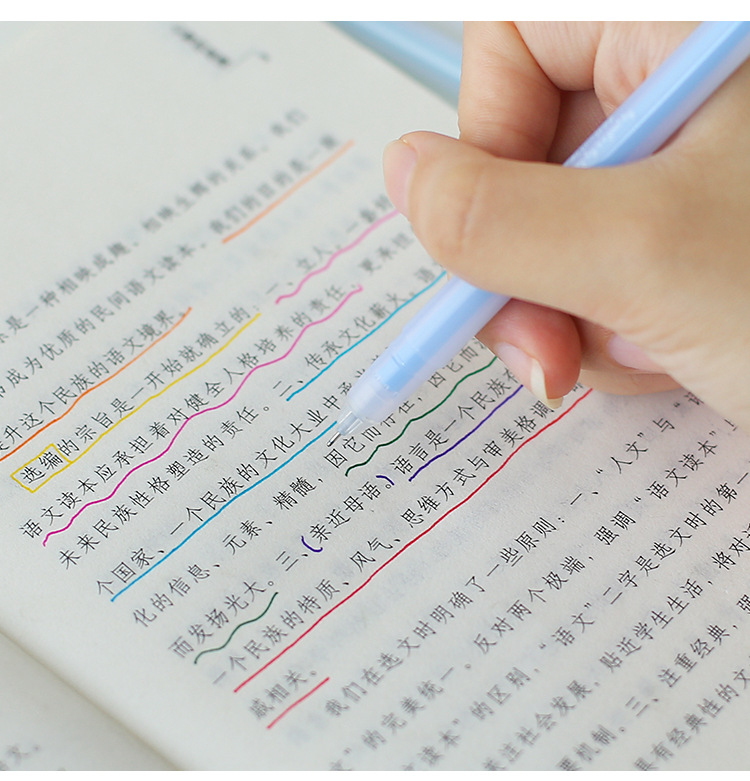 是一种相映成趣、相映生辉的关系。我们
成为优质的民间语文读本。我们的目的是一是
升这个民族的语文境界。
选编的宗旨是一开始就确立的，一、立人。一套
语文读本应承担着对健全人格培养的责任，更承担
未来民族性格塑造的责任。二、传承文化薪火。
个国家、一个民族的文化大业中
化的信息、元素、精髓，因它而存在，因它而
而发扬光大。三、(亲近母语。)语言是一个民族
一个民族的特质、风气、思维方式与审美格调
戚相关。
我们在选文时明确了一些原则：一、“人文”与“语
”的完美统一。反对两个极端，强调“语文读本”
读本”的区别，“语文”二字是选文时的第一
关注社会发展，贴近学生生活，将对
机制。三、注重经典，强
有经典性的文